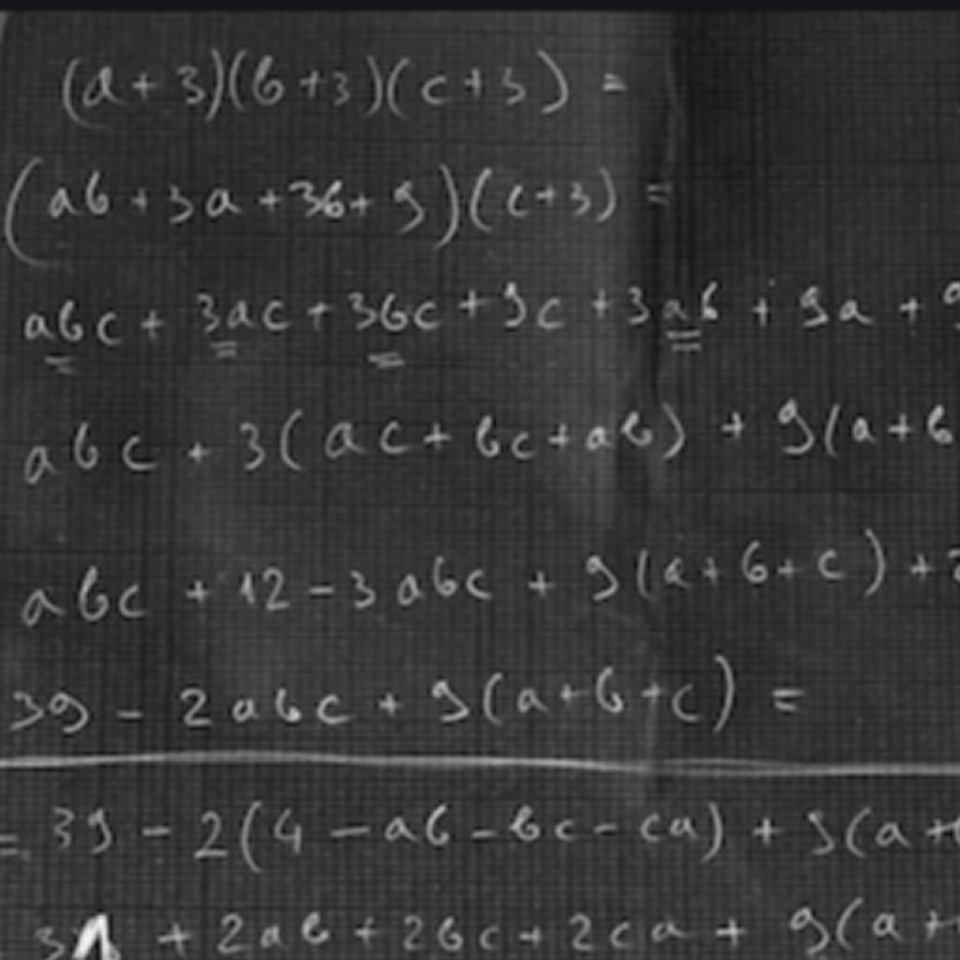 (a+3)(b+3)(c+3) =
(ab+3a+3b+9)(c+3) =
abc + 3ac + 3bc + 9c + 3ab + 9a + 9
abc + 3(ac+bc+ab) + 9(a+b
abc + 12 - 3abc + 9(a+b+c) + 2
39 - 2abc + 9(a+b+c) =
= 39 - 2(4 - ab - bc - ca) + 9(a+b
31 + 2ab + 2bc + 2ca + 9(a+